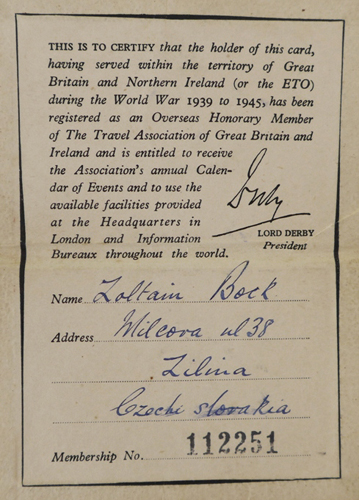 THIS IS TO CERTIFY that the holder of this card,
having served within the territory of Great
Britain and Northern Ireland (or the ETO)
during the World War 1939 to 1945, has been
registered as an Overseas Honorary Member
of The Travel Association of Great Britain and
Ireland and is entitled to receive
the Association's annual Calen-
dar of Events and to use the
available facilities provided
at the Headquarters in
London and Information
Bureaux throughout the world.
Derby
LORD DERBY
President
Name Zoltain Bock
Address Milcova ul 38
Zilina
Czecho slovakia
Membership No. 112251